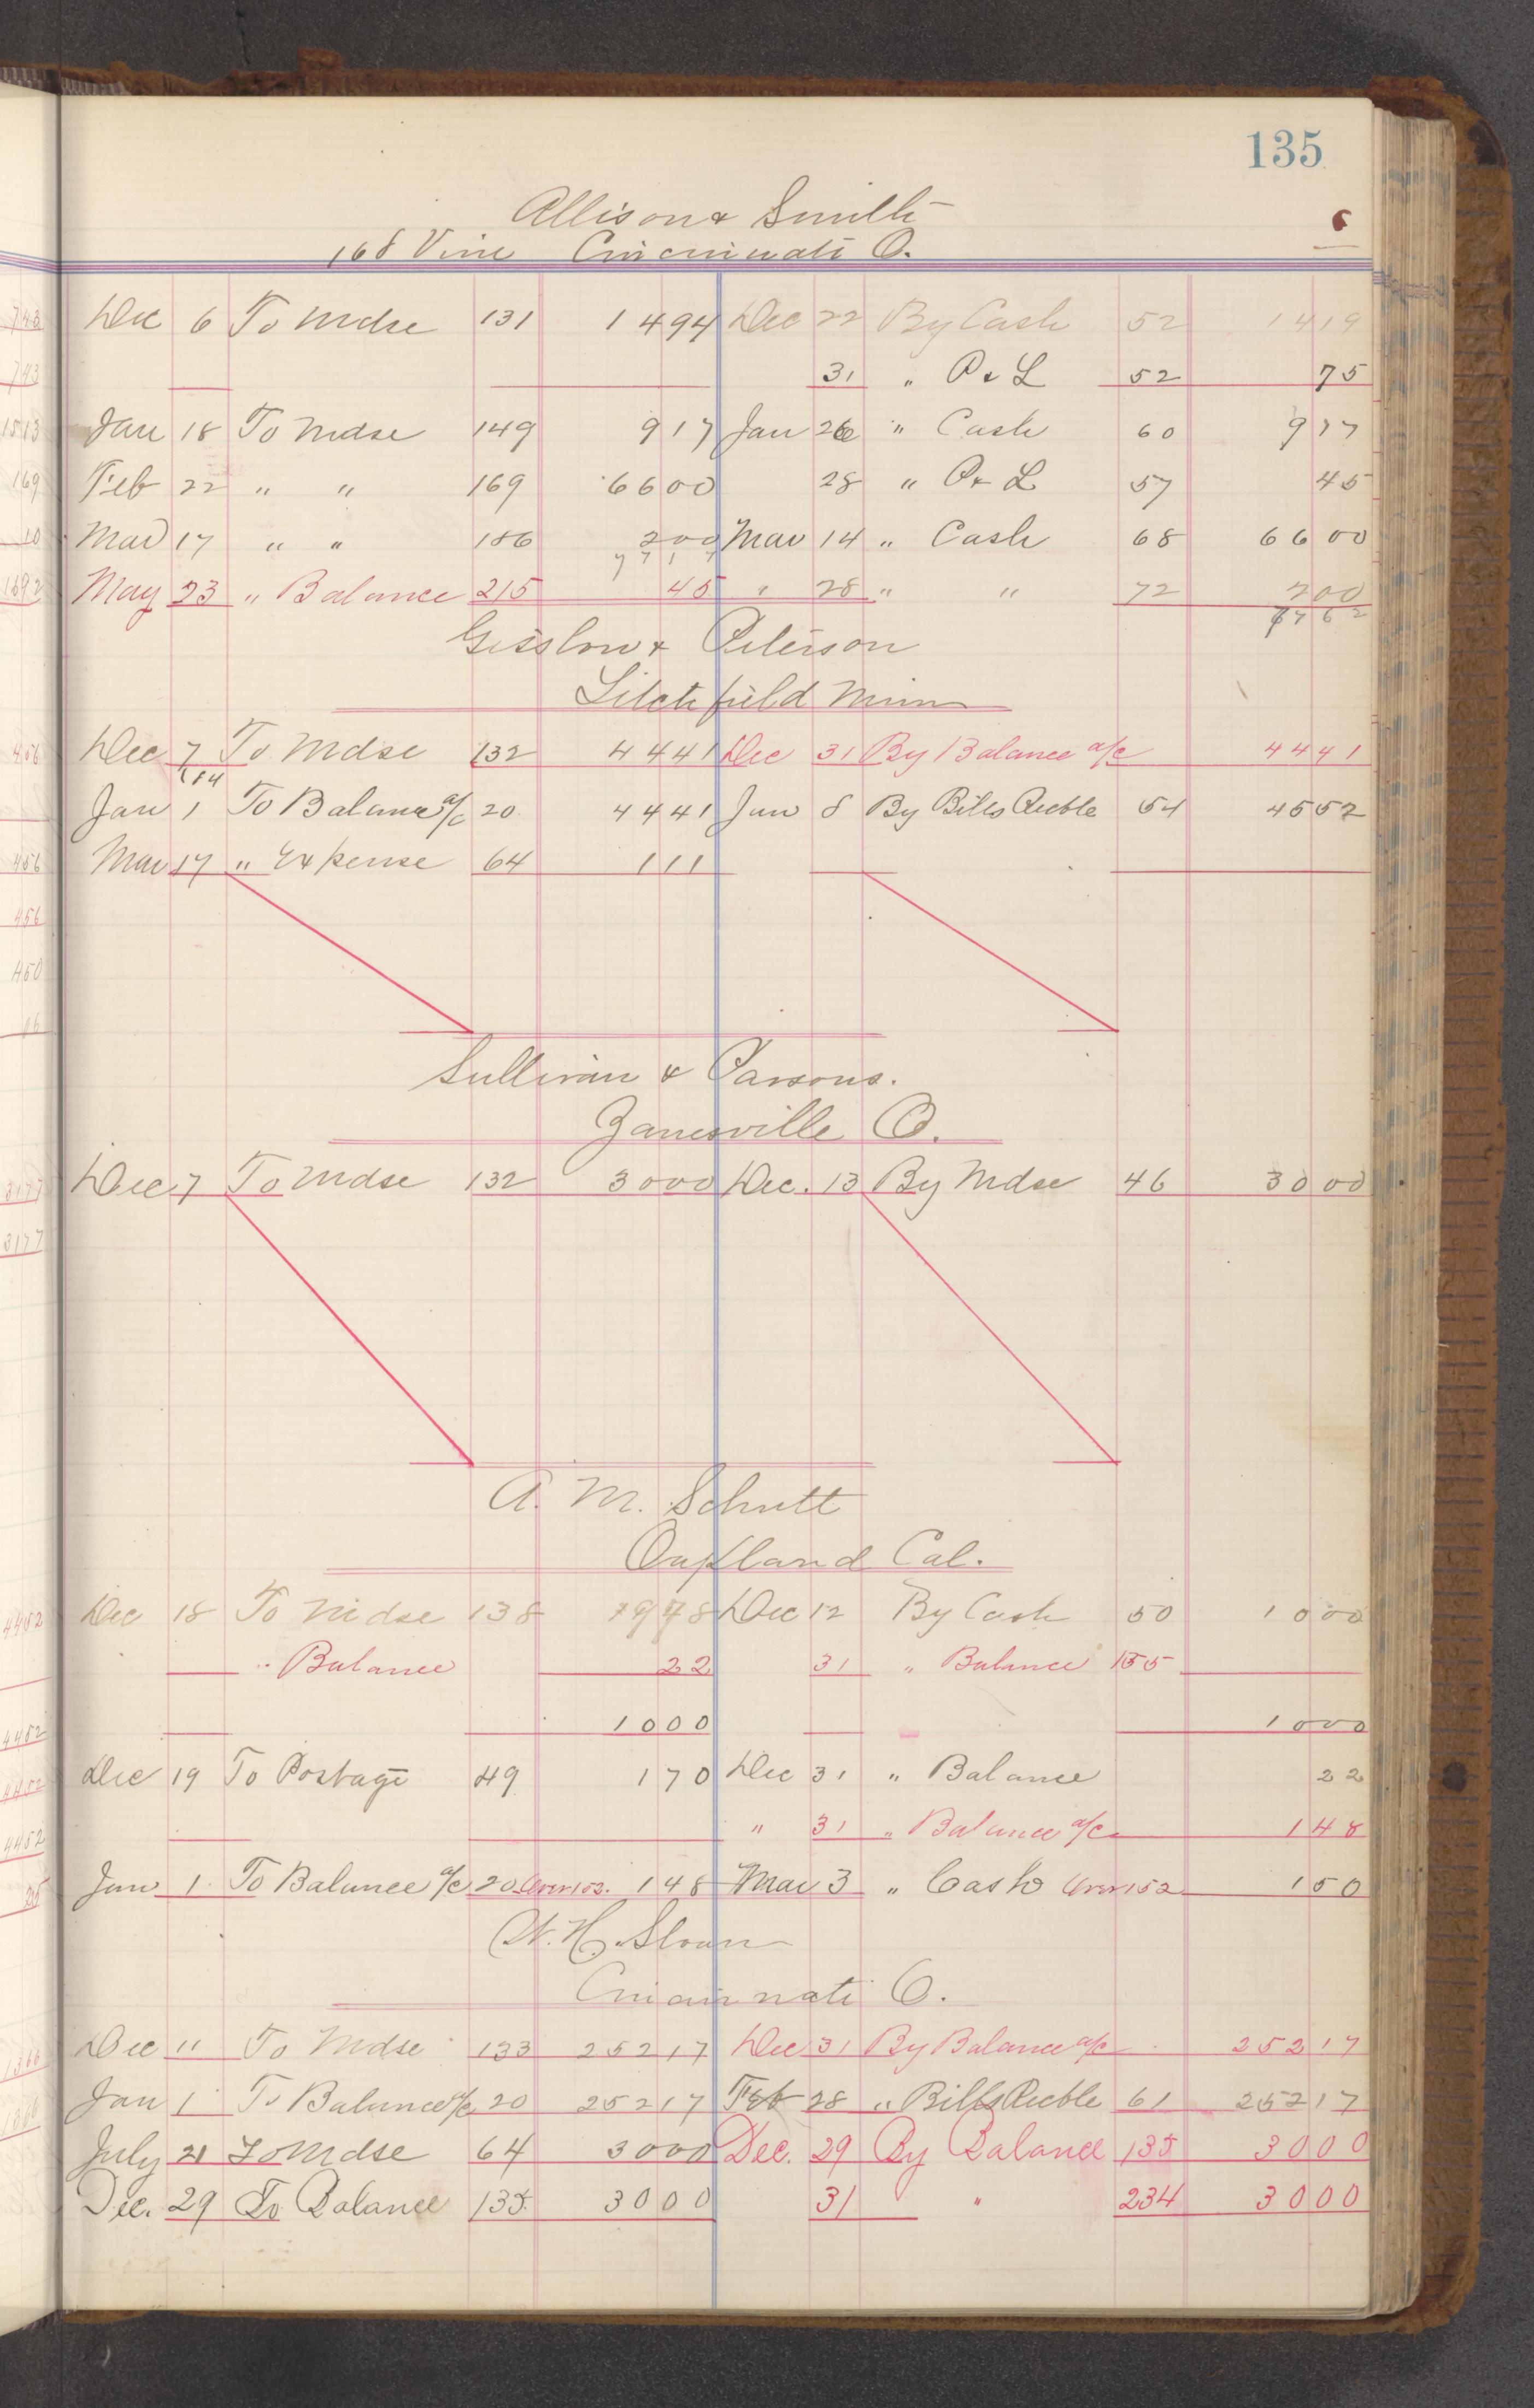 135
Allison & Smith
168 Vine Cincinnati O.
Dec 6 To Mdse 131 14 94 Dec 22 By Cash 52 14 19
31 " P & L 52 75
Jan 18 To Mdse 149 9 17 Jan 26 " Cash 60 9 17
Feb 22 " " 169 66 00 28 " P & L 57 45
Mar 17 " " 186 2 00 Mar 14 " Cash 68 66 00
77 17
May 23 " Balance 215 45 " 28 " " 72 2 00
77 62
Gisslow & Peterson
Litchfield Minn
Dec 7 To Mdse 132 44 41 Dec 31 By Balance a/c 44 41
Jan 1 To Balance a/c 20 44 41 Jan 8 By Bills Recble 54 45 52
Mar 17 " Expense 64 1 11
Sullivan & Parsons.
Zanesville O.
Dec 7 To Mdse 132 30 00 Dec. 13 By Mdse 46 30 00
A. M. Schutt
Oakland Cal.
Dec 18 To Mdse 138 9 78 Dec 12 By Cash 50 10 00
" Balance 22 31 " Balance 135
10 00 10 00
Dec 19 To Postage 49 1 70 Dec 31 " Balance 22
" 31 " Balance a/c 1 48
Jan 1 To Balance a/c 20 Over 152. 1 48 Mar 3 " Cash Over 152 1 50
W. H. Sloan
Cincinnati O.
Dec 11 To Mdse 133 252 17 Dec 31 By Balance a/c 252 17
Jan 1 To Balance a/c 20 252 17 Feb 28 " Bills Recble 61 252 17
July 21 To Mdse 64 30 00 Dec. 29 By Balance 135 30 00
Dec. 29 To Balance 135 30 00 31 " 234 30 00